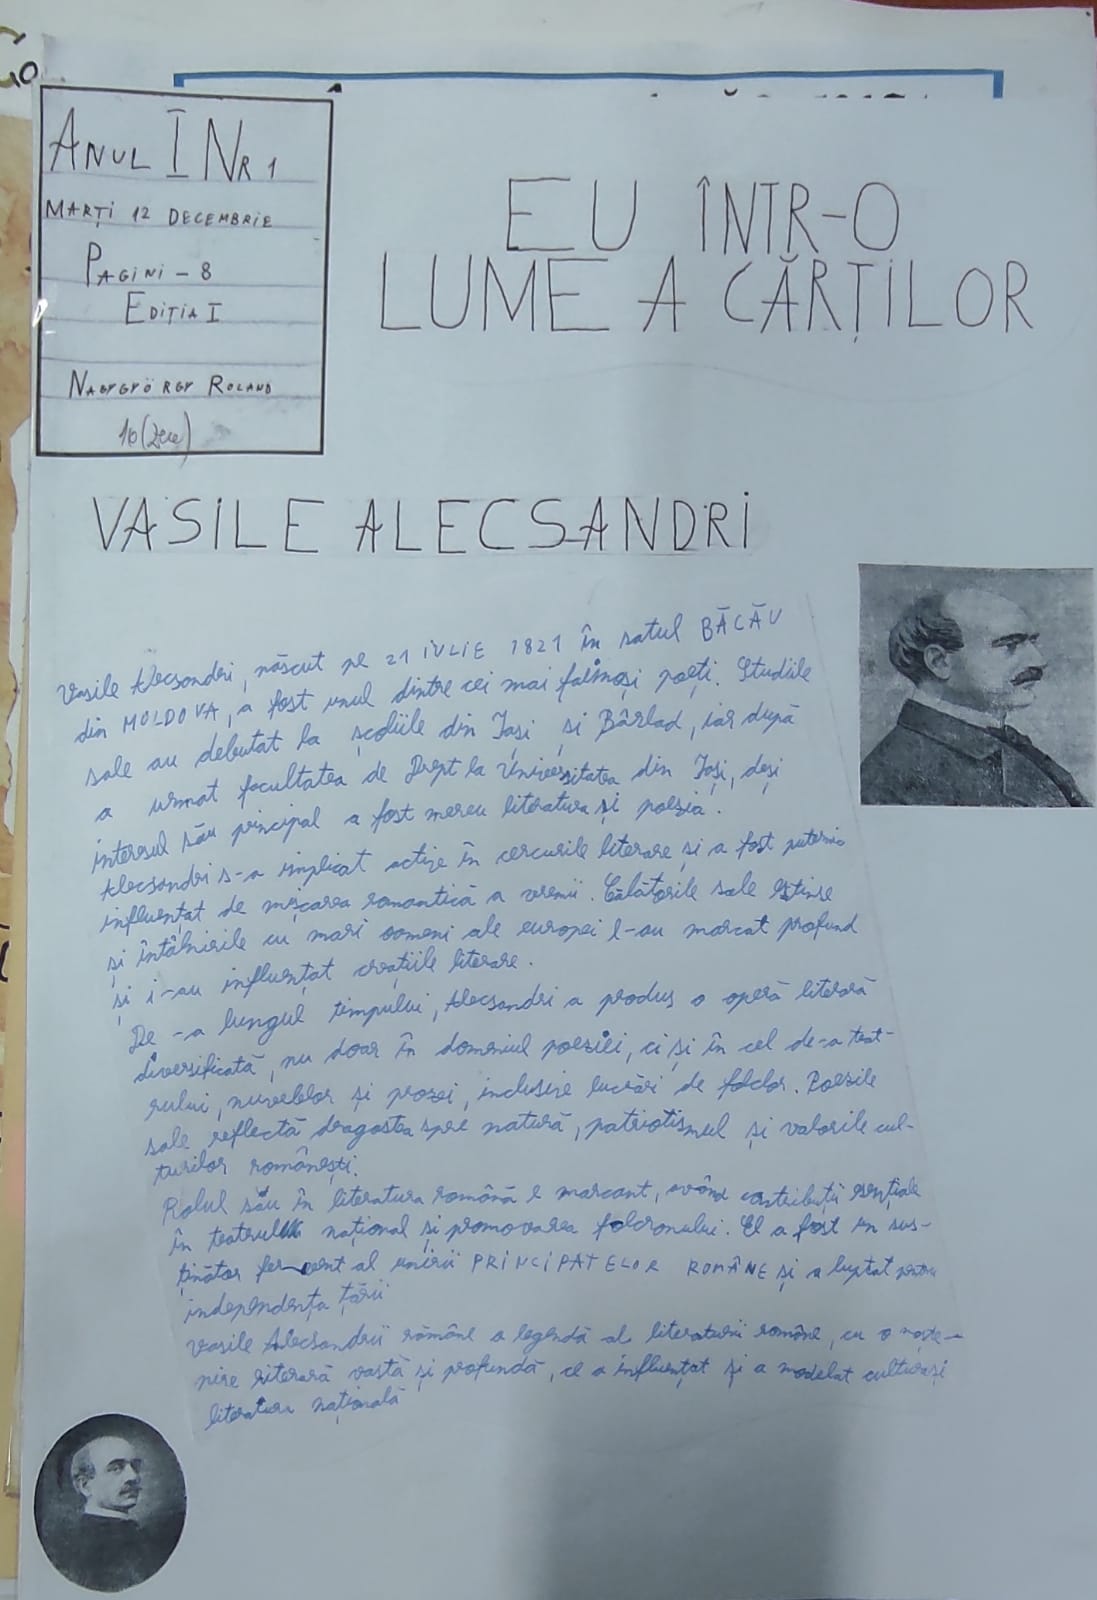 ANUL I NR 1
MARȚI 12 DECEMBRIE
PAGINI - 8
EDIȚIA I
NAGYGYÖRGY ROLAND
10 (Zece)
EU ÎNTR-O
LUME A CĂRȚILOR
VASILE ALECSANDRI
Vasile Alecsandri, născut pe 21 IULIE 1821 în satul BĂCĂU
din MOLDOVA, a fost unul dintre cei mai faimoși poeți. Studiile
sale au debutat la școliile din Iași și Bârlad, iar după
a urmat facultatea de Drept la Universitatea din Iași, deși
interesul său principal a fost mereu literatura și poezia.
Alecsandri s-a implicat activ în cercurile literare și a fost puternic
influențat de mișcarea romantică a vremii. Călătoriile sale extinse
și întâlnirile cu mari oameni ale europei l-au marcat profund
și i-au influențat creațiile literare.
De-a lungul timpului, Alecsandri a produs o operă literară
diversificată, nu doar în domeniul poeziei, ci și în cel de-a teat-
rului, nuvelelor și prozei, inclusive lucrări de folclor. Poezile
sale reflectă dragostea spre natură, patriotismul și valorile cul-
turilor românești.
Rolul său în literatura română e marcant, având contribuții esențiale
în teatrul național si promovarea folcronului. El a fost un sus-
ținător fervent al unirii PRINCIPATELOR ROMÂNE și a luptat pentru
independența țării
Vasile Alecsandrii rămâne o legendă al literaturii române, cu o moște-
nire literară vastă și profundă, ce a influențat și a modelat cultura și
literatura națională